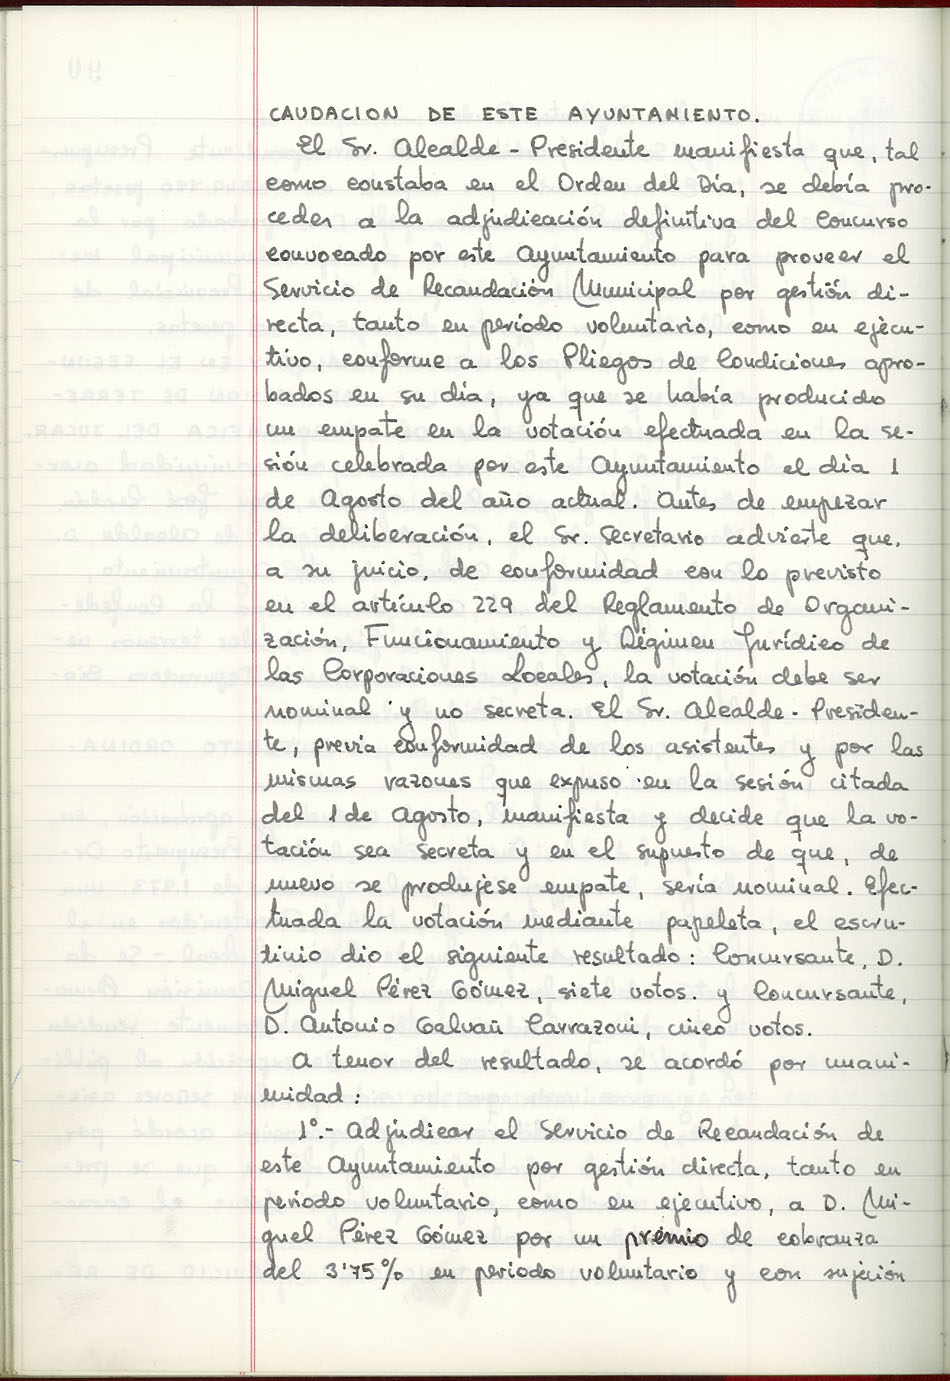 CAUDACION DE ESTE AYUNTAMIENTO.
El Sr. Alcalde - Presidente manifiesta que, tal
como constaba en el Orden del Día, se debía pro-
ceder a la adjudicación definitiva del Concurso
convocado por este Ayuntamiento para proveer el
Servicio de Recaudación Municipal por gestión di-
recta, tanto en período voluntario, como en ejecu-
tivo, conforme a los Pliegos de Condiciones apro-
bados en su día, ya que se había producido
un empate en la votación efectuada en la se-
sión celebrada por este Ayuntamiento el día 1
de Agosto del año actual. Antes de empezar
la deliberación, el Sr. Secretario advierte que,
a su juicio, de conformidad con lo previsto
en el artículo 229 del Reglamento de Organi-
zación, Funcionamiento y Régimen Jurídico de
las Corporaciones Locales, la votación debe ser
nominal y no secreta. El Sr. Alcalde - Presiden-
te, previa conformidad de los asistentes y por las
mismas razones que expuso en la sesión citada
del 1 de Agosto, manifiesta y decide que la vo-
tación sea secreta y en el supuesto de que, de
nuevo se produjese empate, sería nominal. Efec-
tuada la votación mediante papeleta, el escru-
tinio dio el siguiente resultado: Concursante, D.
Miguel Pérez Gómez, siete votos. y Concursante,
D. Antonio Galvañ Carrazoni, cinco votos.
A tenor del resultado, se acordó por unani-
midad:
1º.- Adjudicar el Servicio de Recaudación de
este Ayuntamiento por gestión directa, tanto en
período voluntario, como en ejecutivo, a D. Mi-
guel Pérez Gómez por un premio de cobranza
del 3'75% en período voluntario y con sujeción